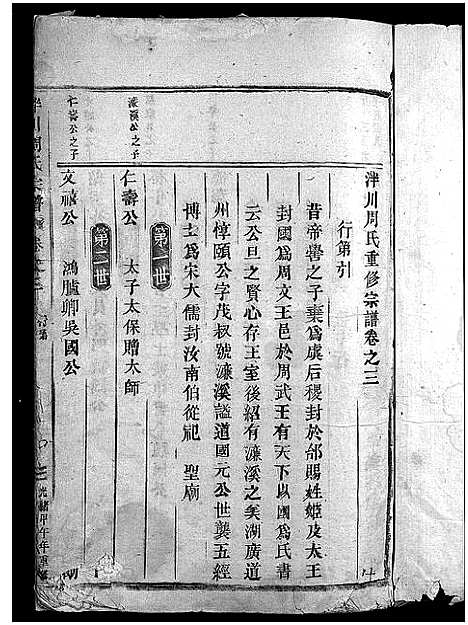 泮川周氏重修宗譜卷之三
行第引
昔帝嚳之子棄爲虞后稷封於邰賜姓姬及太王
封國爲周文王邑於周武王有天下以國爲氏書
云公旦之賢心存王室後紹有濂溪之矣湖廣道
州惇頤公字茂叔號濂溪謚道國元公世襲五經
博士爲宋大儒封汝南伯從祀 聖廟
第一世
濂溪公之子
仁壽公 太子太保贈太師
第二世
仁壽公之子
文禠公 鴻臚卿吳國公
川周氏宗譜 卷之三
光緒甲午年重